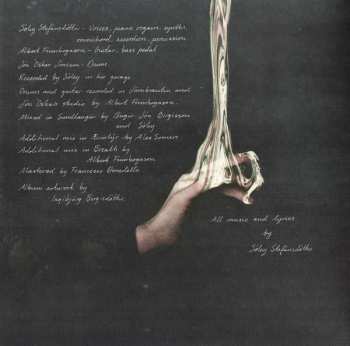 Sóley Stefánsdóttir - Voices, piano, organ, synths,
omnichord, accordion, percussion
Albert Finnbogason - Guitar, bass pedal
Jón Óskar Jónsson - Drums
Recorded by Sóley in her garage
Drums and guitar recorded in and
Jón Óskar's studio by Albert Finnbogason
Mixed in Sundlaugin by Birgir Jón Birgisson
and Sóley
Additional mix in by Alex Somers
Additional mix in Breath by
Albert Finnbogason
Mastered by Francesco Donadello
Album artwork by
Ingibjörg Birgisdóttir
All music and lyrics
by
Sóley Stefánsdóttir